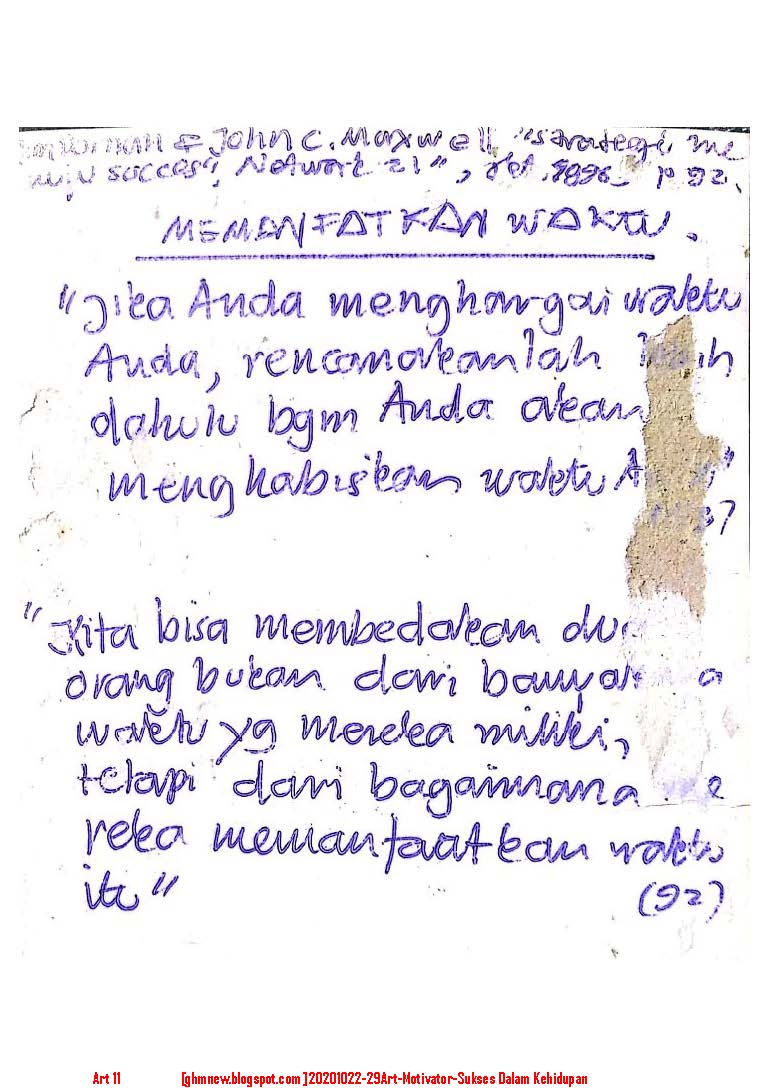 Dornan & John C. Maxwell, "strategi me
nuju succes", Network 21", okt. 1996 p 92.
MEMANFATKAN WAKTU.
"Jika Anda menghargai waktu
Anda, rencanakanlah
dahulu bgm Anda akan
menghabiskan waktu
"Kita bisa membedakan
orang bukan dari
waktu yg mereka miliki,
tetapi dari bagaimana me
reka memanfaatkan waktu
itu"
(92)
Art 11 [ghmnew.blogspot.com ]20201022-29Art-Motivator-Sukses Dalam Kehidupan